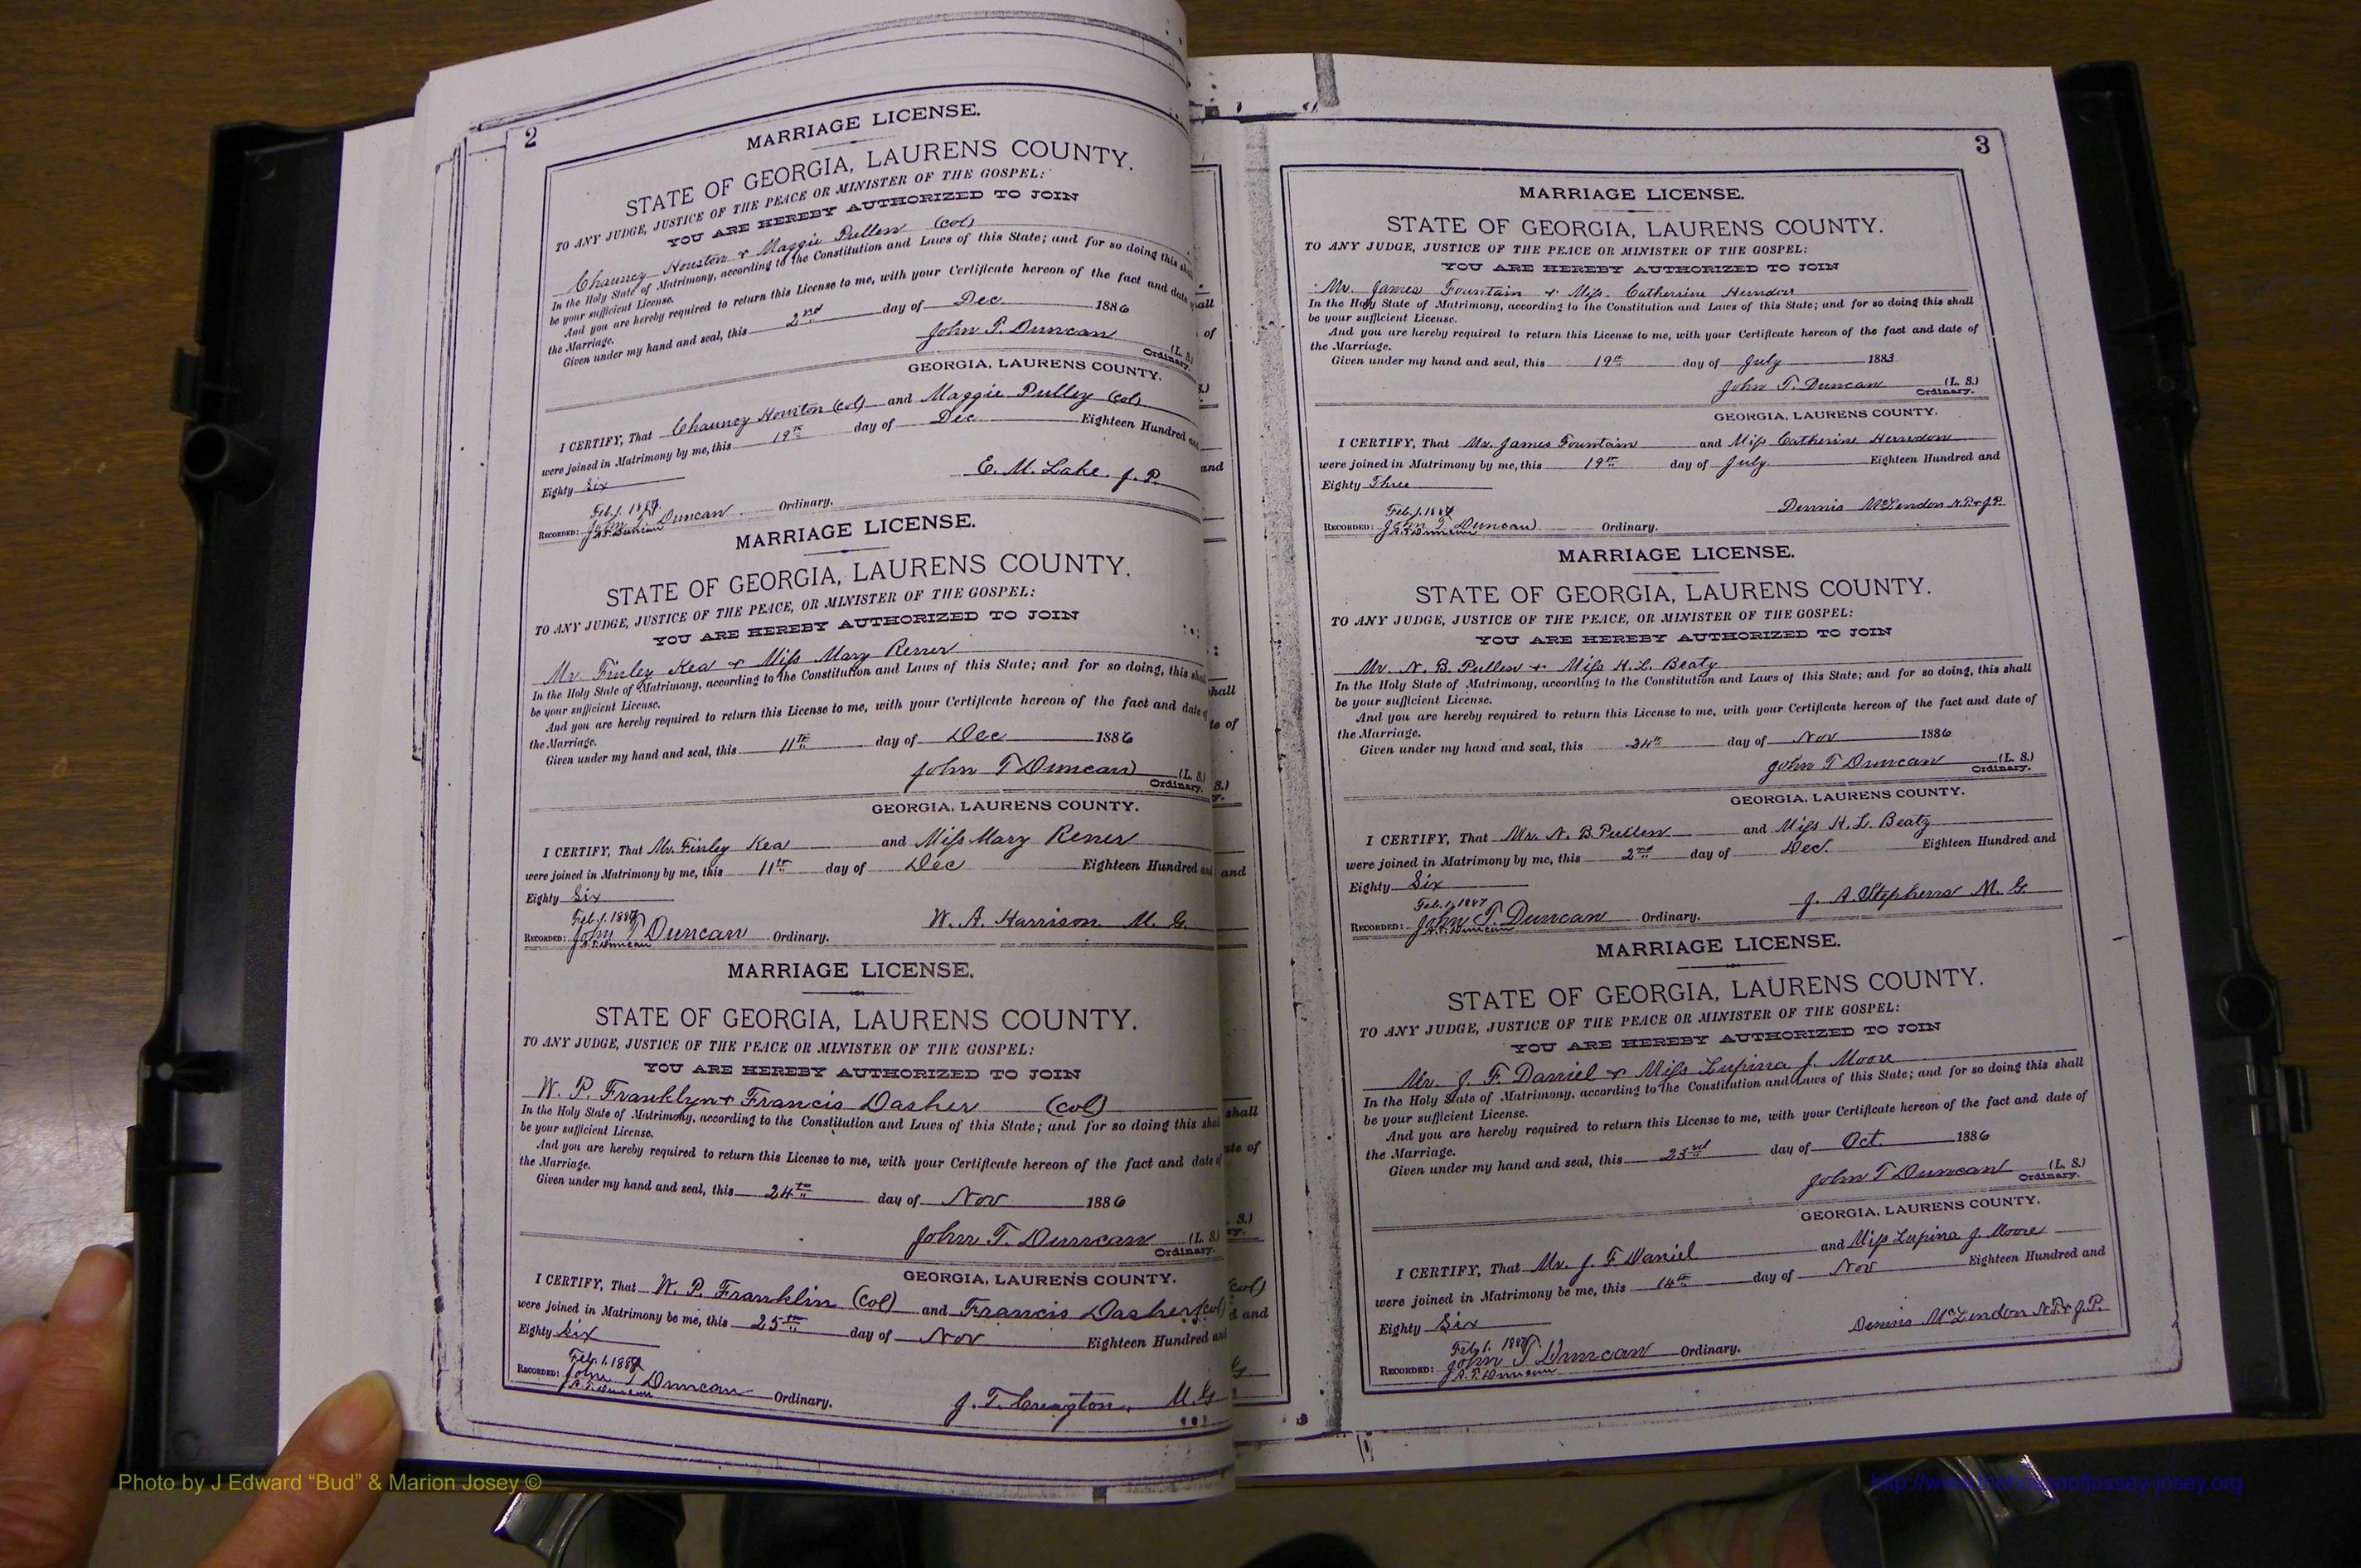 2
MARRIAGE LICENSE.
STATE OF GEORGIA, LAURENS COUNTY.
TO ANY JUDGE, JUSTICE OF THE PEACE OR MINISTER OF THE GOSPEL:
YOU ARE HEREBY AUTHORIZED TO JOIN
Chauncy Houston & Maggie Pullen (Col)
In the Holy State of Matrimony, according to the Constitution and Laws of this State; and for so doing this shall
be your sufficient License.
And you are hereby required to return this License to me, with your Certificate hereon of the fact and date
the Marriage.
Given under my hand and seal, this 2nd day of Dec 1886
John T. Duncan (L. S.)
Ordinary.
GEORGIA, LAURENS COUNTY.
I CERTIFY, That Chauncy Houston (Col) and Maggie Pulley (Col)
were joined in Matrimony by me, this 19th day of Dec. Eighteen Hundred and
Eighty Six
E. M. Lake J. P.
Feb. 1. 1887
RECORDED: John T. Duncan Ordinary.
A. T. Duncan
MARRIAGE LICENSE.
STATE OF GEORGIA, LAURENS COUNTY.
TO ANY JUDGE, JUSTICE OF THE PEACE, OR MINISTER OF THE GOSPEL:
YOU ARE HEREBY AUTHORIZED TO JOIN
Mr. Finley Kea & Miss Mary Rener
In the Holy State of Matrimony, according to the Constitution and Laws of this State; and for so doing, this shall
be your sufficient License.
And you are hereby required to return this License to me, with your Certificate hereon of the fact and date of
the Marriage.
Given under my hand and seal, this 11th day of Dec 1886
John T Duncan (L. S.)
Ordinary.
GEORGIA, LAURENS COUNTY.
I CERTIFY, That Mr. Finley Kea and Miss Mary Rener
were joined in Matrimony by me, this 11th day of Dec Eighteen Hundred and
Eighty Six
W. A. Harrison M. G.
Feb. 1. 1887
RECORDED: John T Duncan Ordinary.
A. T. Duncan
MARRIAGE LICENSE.
STATE OF GEORGIA, LAURENS COUNTY.
TO ANY JUDGE, JUSTICE OF THE PEACE OR MINISTER OF THE GOSPEL:
YOU ARE HEREBY AUTHORIZED TO JOIN
W. P. Franklyn & Francis Dasher (Col)
In the Holy State of Matrimony, according to the Constitution and Laws of this State; and for so doing this shall
be your sufficient License.
And you are hereby required to return this License to me, with your Certificate hereon of the fact and date of
the Marriage.
Given under my hand and seal, this 24th day of Nov 1886
John T. Duncan (L. S.)
Ordinary.
GEORGIA, LAURENS COUNTY.
I CERTIFY, That W. P. Franklin (Col) and Francis Dasher (Col)
were joined in Matrimony be me, this 25th day of Nov Eighteen Hundred and
Eighty Six
Feb. 1. 1887
RECORDED: John T Duncan Ordinary.
A. T. Duncan
J. T. M. G
3
MARRIAGE LICENSE.
STATE OF GEORGIA, LAURENS COUNTY.
TO ANY JUDGE, JUSTICE OF THE PEACE OR MINISTER OF THE GOSPEL:
YOU ARE HEREBY AUTHORIZED TO JOIN
Mr. James Fountain & Miss. Catherine Herndon
In the Holy State of Matrimony, according to the Constitution and Laws of this State; and for so doing this shall
be your sufficient License.
And you are hereby required to return this License to me, with your Certificate hereon of the fact and date of
the Marriage.
Given under my hand and seal, this 19th day of July 1883
John T. Duncan (L. S.)
Ordinary.
GEORGIA, LAURENS COUNTY.
I CERTIFY, That Mr. James Fountain and Miss Catherine Herndon
were joined in Matrimony by me, this 19th day of July. Eighteen Hundred and
Eighty Three
Dennis McLendon N.P. & J.P.
Feb. 1. 1887
RECORDED: John T Duncan Ordinary.
A. T. Duncan
MARRIAGE LICENSE.
STATE OF GEORGIA, LAURENS COUNTY.
TO ANY JUDGE, JUSTICE OF THE PEACE, OR MINISTER OF THE GOSPEL:
YOU ARE HEREBY AUTHORIZED TO JOIN
Mr. N. B. Pullen & Miss H. L. Beaty
In the Holy State of Matrimony, according to the Constitution and Laws of this State; and for so doing, this shall
be your sufficient License.
And you are hereby required to return this License to me, with your Certificate hereon of the fact and date of
the Marriage.
Given under my hand and seal, this 24th day of Nov 1886
John T Duncan (L. S.)
Ordinary.
GEORGIA, LAURENS COUNTY.
I CERTIFY, That Mr. N. B. Pullen and Miss H. L. Beaty
were joined in Matrimony by me, this 2nd day of Dec. Eighteen Hundred and
Eighty Six
J. A. Stephens M. G.
Feb. 1, 1887
RECORDED: John T. Duncan Ordinary.
A. T. Duncan
MARRIAGE LICENSE.
STATE OF GEORGIA, LAURENS COUNTY.
TO ANY JUDGE, JUSTICE OF THE PEACE OR MINISTER OF THE GOSPEL:
YOU ARE HEREBY AUTHORIZED TO JOIN
Mr. J. F. Daniel & Miss Lupina J. Moore
In the Holy State of Matrimony, according to the Constitution and Laws of this State; and for so doing this shall
be your sufficient License.
And you are hereby required to return this License to me, with your Certificate hereon of the fact and date of
the Marriage.
Given under my hand and seal, this 23rd day of Oct. 1886
John T Duncan (L. S.)
Ordinary.
GEORGIA, LAURENS COUNTY.
I CERTIFY, That Mr. J. F Daniel and Miss Lupina J. Moore
were joined in Matrimony be me, this 14th day of Nov Eighteen Hundred and
Eighty Six
Dennis McLendon N.P. & J.P.
Feb 1. 1887
RECORDED: John T Duncan Ordinary.
A. T. Duncan
Photo by J Edward “Bud” & Marion Josey ©
http://www.thehouseofjossey-josey.org